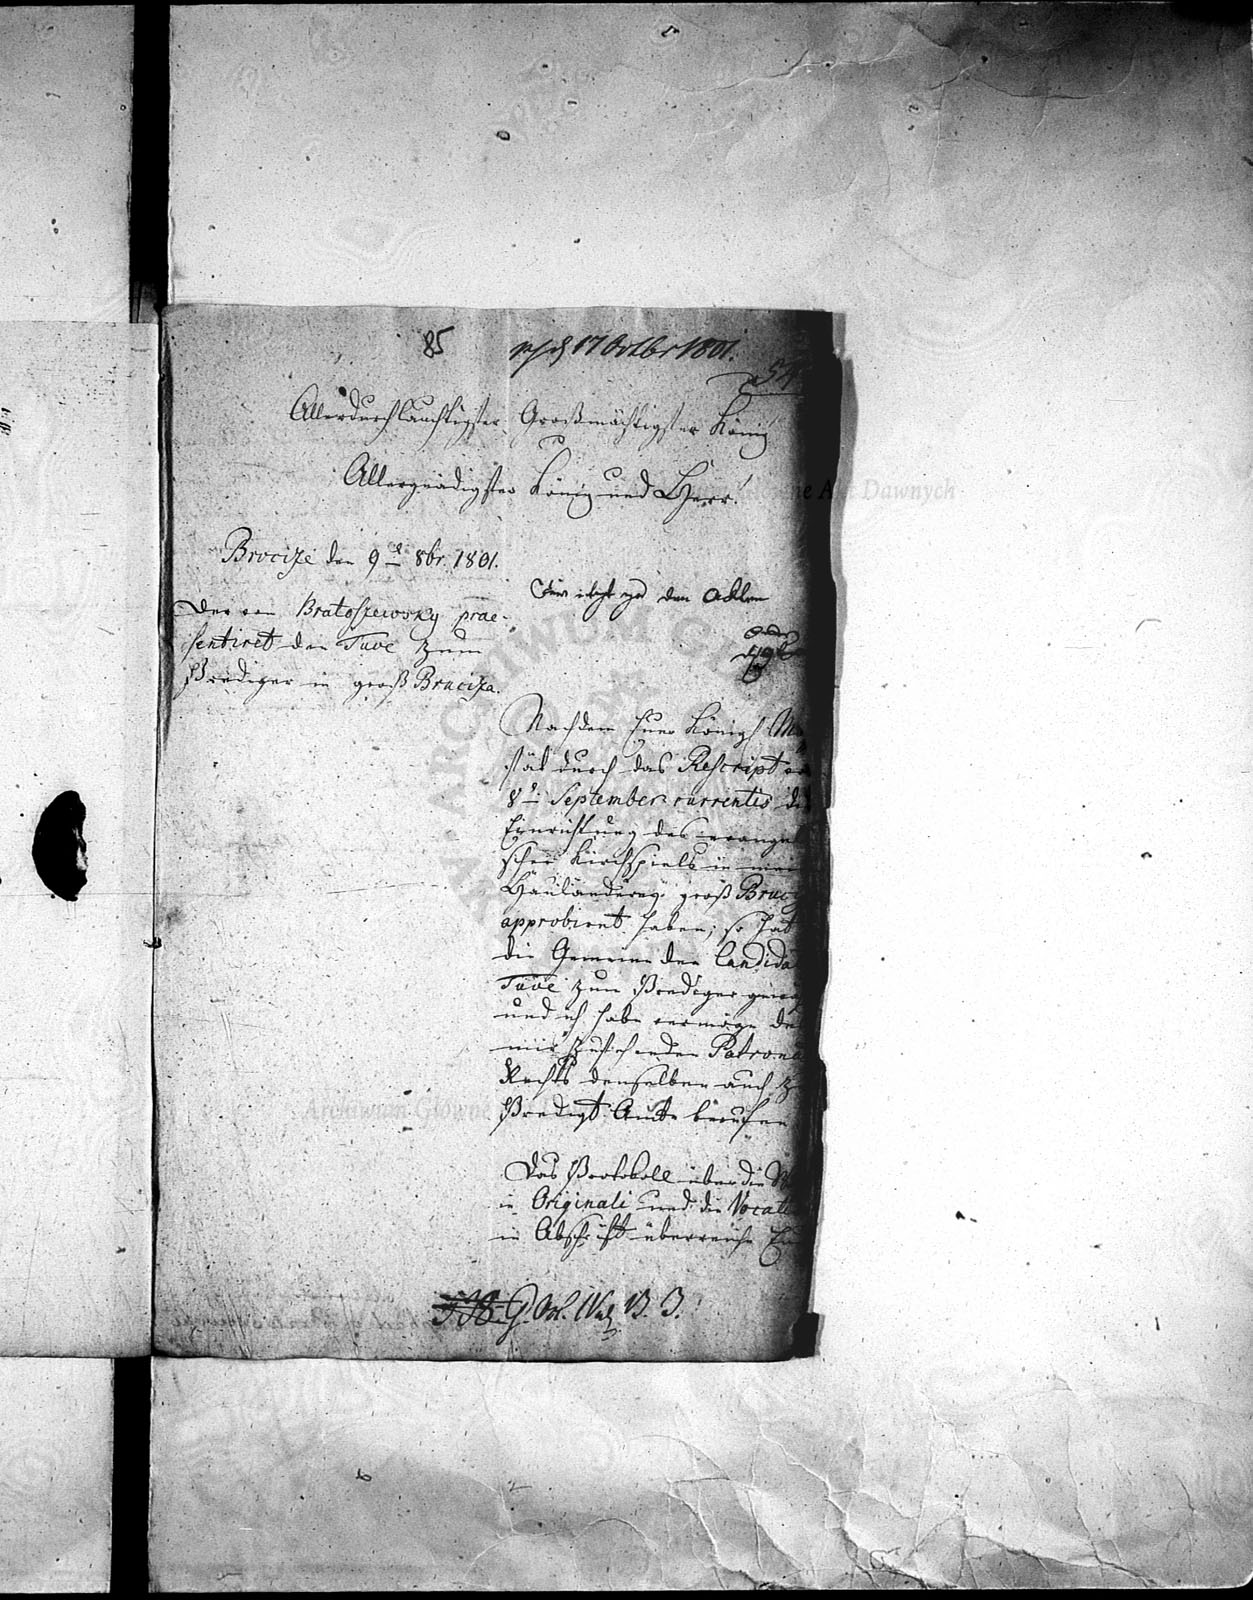 85
17 Octbr 1801.
Allerdurchlauchtigster Großmächtigster König
Allergnädigster König und Herr!
Brocize den 9t 8br. 1801.
Der von Bratoszewsky prae-
sentiret den Tuve zum
Prediger in groß Bruciza.
den Acten
Nachdem Euer Königl. Ma
stät durch das Rescript
8t September currentis die
Einrichtung des evangel
schen Kirchspiels in mei
Hauländerey groß Bruc
approbiret haben; so hat
die Gemeine den Candida
Tuve zum Prediger
und ich habe vermöge de
mir zustehenden Patrona
Rechts denselben auch z
Predigt-Amte berufen
Das Protokoll über die
in Originali und die Vocati
in Abschrift überreiche Eu
Archiwum Główne Akt Dawnych
ARCHIWUM